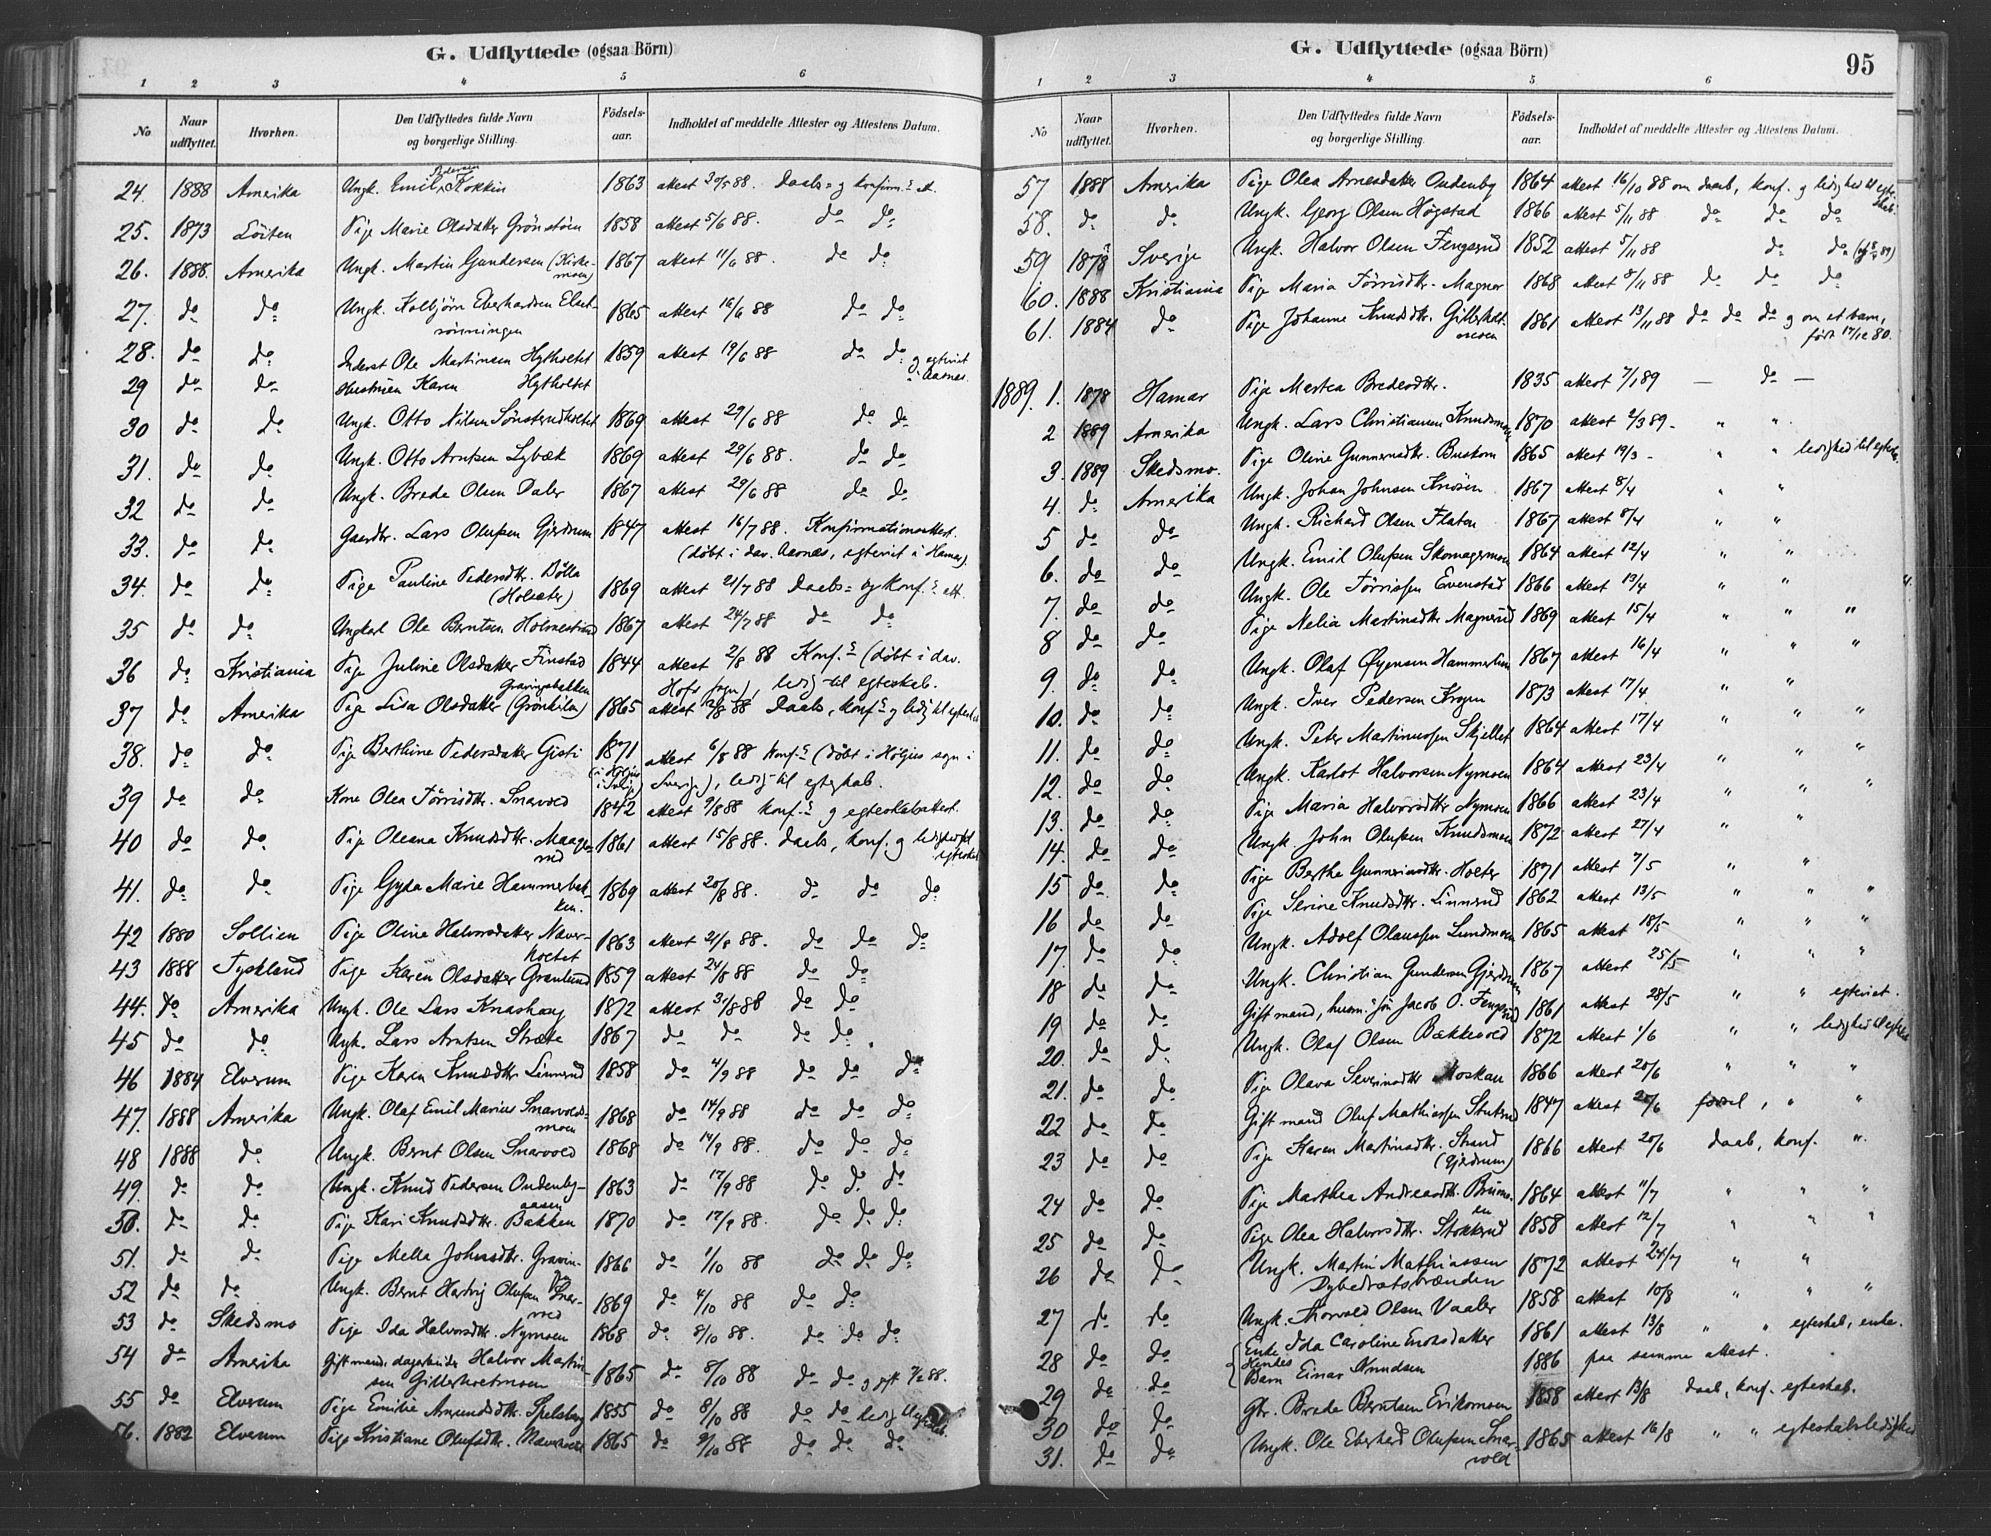 G. Udflyttede (ogsaa Börn)
1 2 3 4 5 6
No Naar udflyttet. Hvorhen. Den Udflyttedes fulde Navn og borgerlige Stilling. Födselsaar. Indholdet af meddelte Attester og Attestens Datum.
Pedersen
24. 1888 Amerika Ungk. Emil Kokkin 1863 attest 30/5 88. Daabs= og konfirm.s att.
25. 1873 Löiten Pige Marie Olsdatter Grönstöen 1858 attest 5/6 88. do do
26. 1888. Amerika Ungk. Martin Gundersen (Kirkemoen) 1867 attest 11/6 88. do do
27. do do Ungk. Kolbjörn Eberhardsen 1865 attest 16/6 88 do do
rönningen
28. do do Inderst Ole Martinsen Hytholtet 1859 attest 19/6 88 do do og egtevist
29 do do Hustruen Karen Hytholtet i Aarnes.
30 do do Ungk. Otto Nilsen 1869 attest 29/6 88 do do
31. do do Ungk. Otto Arntsen Lybæk 1869 attest 29/6 88. do do
32 do do Ungk. Brede Olsen Daler 1867 attest 29/6 88 do do
33. do do Gaardbr. Lars Olufsen Gjerdrum 1847 attest 16/7 88. Konfirmationsattest.
(döbt i dav. Aarnes, egteviet i Hamar)
34. do do Pige Pauline Pedersdtr. Dölla 1869 attest 21/7 88 Daabs= og Konf.s att.
(Holsæter)
35 do do Ungkarl Ole Berntsen Holmestrand 1867 attest 24/7 88 do do
36 do Kristiania Pige Juline Olsdatter Finstad 1844 attest 2/8 88 Konf.s (döbt i dav.
Hofs sogn), ledig til egteskab.
Gravingsbakken
37 do Amerika Pige Lida Olsdatter (Grönkilen) 1865 attest 2/8 88 Daabs, konf.s og ledig til egteskab
38. do do Pige Berthine Pedersdatter Gisti 1871 attest 6/8 88 konf.s (döbt i Höljes sogn i
Sverige), ledig til egteskab.
39 do do Kone Olea Törrisdtr. Snarvold 1842 attest 9/8 88 konf.s og egteskabattest.
40 do do Pige Oleana Knudsdtr. Maagerud 1861 attest 15/8 88. Daabs, konf. og ledighed til egteskab
41. do do Pige Gyda Marie Hammerbakken. 1869 attest 20/8 88. do do do
42 1880 Sollien Pige Oline Halvorsdatter Næverholtet 1863 attest 21/8 88. do do do
43 1888 Tyskland Pige Karen Olsdatter Granlund 1859 attest 24/8 88 do do
44. do Amerika Ungk. Ole Lars Knashaug 1872 attest 31/8 88 do do
45 do do Ungk. Lars Arntsen Stræte 1867 do do do do
46 1884 Elverum Pige Karen Knudsdtr. Linnerud 1858 do 4/9 88 do do do
47. 1888 Amerika Ungk. Olaf Emil Marius Snarvoldsmoen 1868 do 14/9 88 do do do
48 1888 do Ungk. Bernt Olsen Snarvold 1868 do 14/9 88. do do do
49. do do Ungk. Knud Pedersen Oudenbyaasen 1863 do 17/9 88 do do do
50. do do Pige Kari Knudsdtr. Bakken 1870 do 17/9 88. do do do
51. do do Pige Mella Johnsdtr. 1866 do 1/10 88 do do do
52 do do Ungk. Bernt Hartvig Olufsen Snarvold 1869 do 4/10 88 do do
53 do Skedsmo Pige Ida Halvorsdtr. Nymoen 1868 do 8/10 88. do do do
54 do Amerika Gift mand, dagarbeider Halvor Martinsen Gitterholtmoen 1865 do 8/10 88 do do og gift
55 do Elverum Pige Emilie Amundsdtr. Spelsberg 1855 do 8/10 88 do do ledig til egteskab.
56. 1882 Elverum Pige Kristiane Olufsdtr. 1865 do 9/10 88 do do do
G. Udflyttede (ogsaa Börn)
95
1 2 3 4 5 6
No Naar udflyttet. Hvorhen. Den Udflyttedes fulde Navn og borgerlige Stilling. Födselsaar. Indholdet af meddelte Attester og Attestens Datum.
57 1888 Amerika Pige Olea Arnesdatter Oudenby 1864 attest 16/10 88 om daab, konf. og ledighed til egteskab.
58. do do Ungk. Georg Olsen Högstad 1866 attest 5/11 88 do do do
59 1878 Sverige Ungk. Halvor Olsen Fengerud 1852 attest 5/11 88 do do
60. 1888 Kristiania Pige Maria Törrisdtr. Magner 1868 attest 8/11 88 do do do
61. 1884 do Pige Johanne Knudsdtr. Gitterholtmoen 1861 attest 13/11 88 do do do og om et barn,
født 17/12 80.
1889. 1. 1878 Hamar Pige Martea Bredesdtr. 1835 attest 7/1 89 — do —
2 1889 Amerika Ungk. Lars Christiansen Knudsmoen 1870 attest 2/3 89 - " "
3. 1889 Skedsmo. Pige Oline Gunnersdtr. Buskom 1865 attest 19/3 - " " ledighed til egtesk.
4. do Amerika Ungk. Johan Johnsen Knösen 1867 attest 8/4 " "
5 do do Ungk. Richard Olsen Flaten 1867 attest 8/4 " "
6. do do Ungk. Emil Olufsen Skomagermoen 1864 attest 12/4 " "
7. do do Ungk. Ole Törrissen Evenstad 1866 attest 13/4 " "
8 do do Pige Nelia Martinsdtr. Magnerud 1869 attest 15/4 " " "
9. do do Ungk. Olaf Øygensen Hammerbækken 1867 attest 16/4 " " "
10. do do Ungk. Iver Pedersen Krogen 1873 attest 17/4. " "
11. do do Ungk. Peter Martinussen Skjellet 1864 attest 17/4 " " "
12. do do Ungk. Karlot Halvorsen Nymoen 1864 attest 23/4 " " "
13. do do Pige Maria Halvorsdtr. Nymoen 1866 attest 23/4 " " "
14. do do Ungk. John Olufsen Knudsmoen 1872 attest 27/4 " "
15 do do Pige Berthe Gunnerinsdtr. Holter 1871 attest 7/5 " "
16 do do Pige Serine Knudsdtr. Linnerud 1862 attest 13/5 " " "
17. do do Ungk. Adolf Olaussen Lundmoen 1865 attest 18/5 " " "
18 do do Ungk. Christian Gundersen Gjerdrum 1867 attest 25/5 " " "
19 do do Gift mand, husm. sön Jacob O. Fengerud 1861 attest 28/5 " " egteviet.
20. do do Ungk. Olaf Olsen Bækkevold 1872 attest 1/6 " " ledighed til egtesk.
21. do do Pige Olava Severinsdtr Moskau 1866 attest 20/6 " " "
22 do do Gift mand Oluf Mathiassen Stubsrud 1847 attest 20/6 födsel, " "
23 do do Pige Karen Martinsdtr. Strand 1866 attest 20/6 daab, konf. "
(Gjerdrum)
24 do do Pige Marthea Andreasdtr. 1864 attest 11/7 " " "
25 do do Pige Olea Halvorsdtr. Stokkerud 1858 attest 12/7 " " "
26 do do Ungk. Martin Mathiassen 1872 attest 24/7 " "
Dybedrætsbrænden
27 do do Ungk. Thorvald Olsen Vaaler 1858 attest 10/8 " " "
28 do do Enke Ida Caroline Eriksdatter 1861 attest 13/8 " " egteskab, enke.
29 do do Hendes Barn Einar Knudsen 1886 paa samme attest.
30 do do Gbr. Brede Berntsen Eriksmoen 1858 attest 13/8 daab, konf. egteskab.
31. do do Ungk. Ole Eberhard Olufsen Snarvold 1865 attest 16/8 " " egteskabsledighed